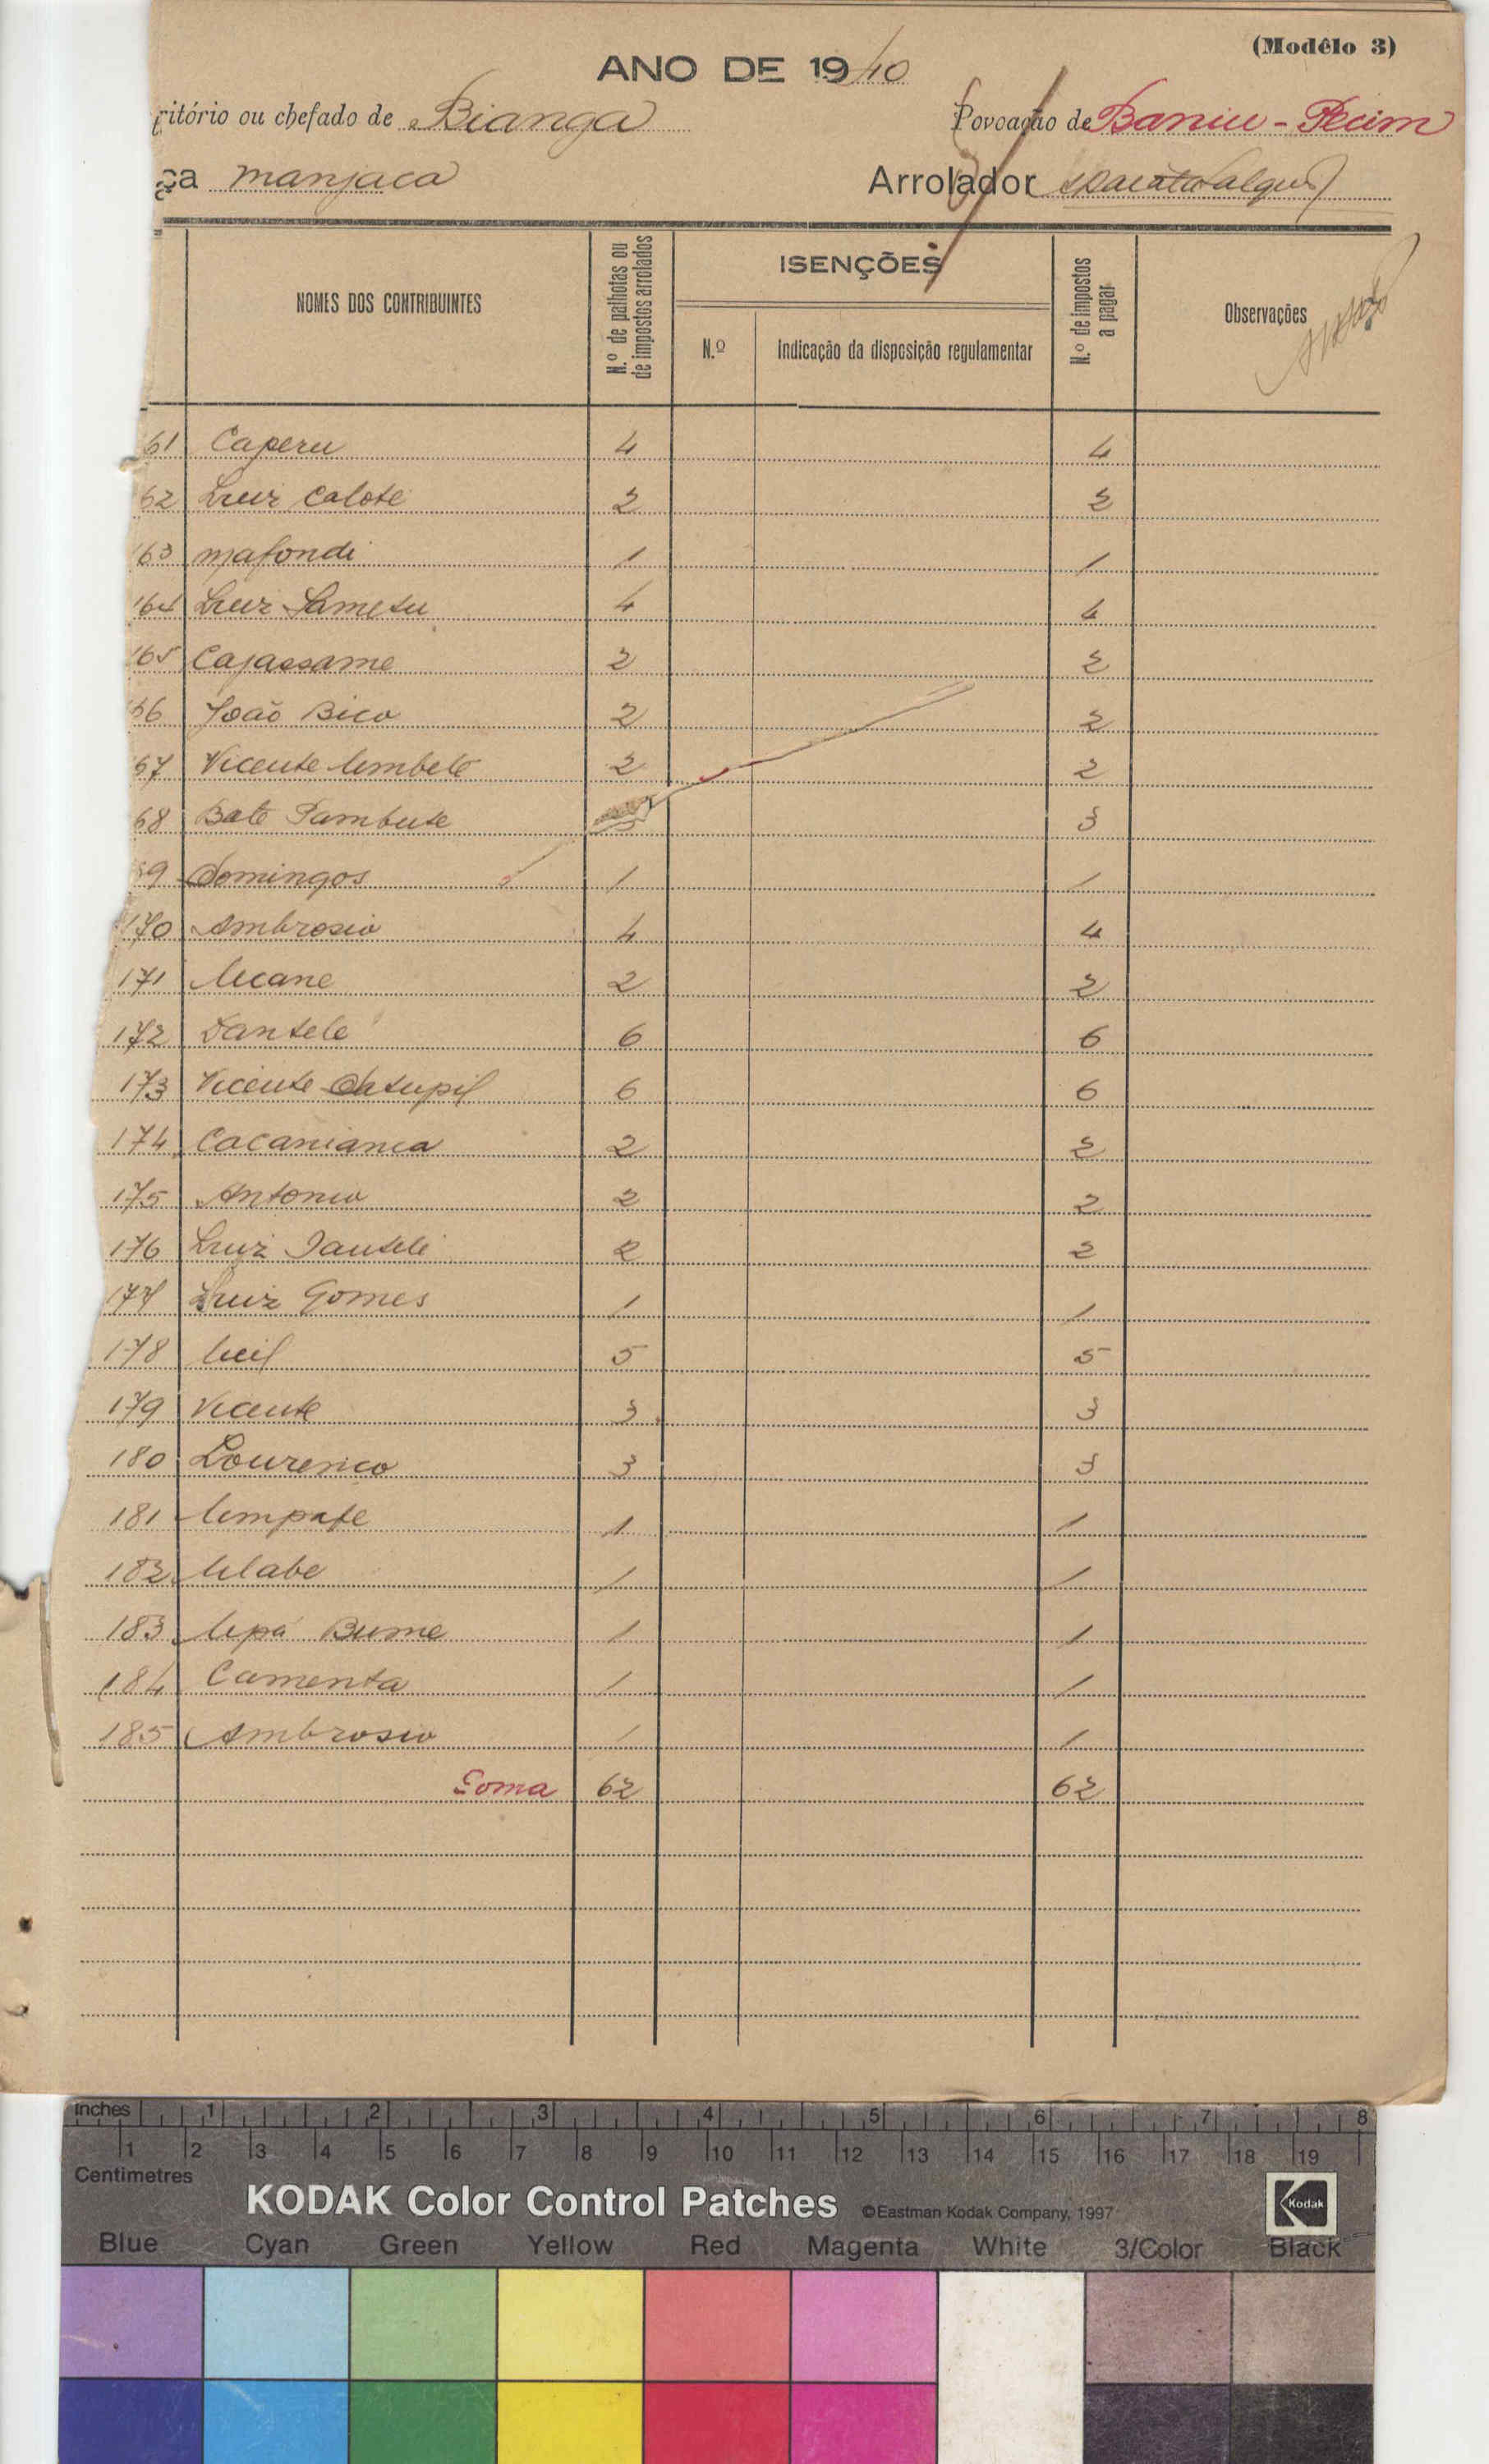 (Modêlo 3)
ANO DE 1940
ritório ou chefado de Bianga Povoação de Baniu - Pecim
ça manjaca Arrolador
NOMES DOS CONTRIBUINTES N.º de palhotas ou de impostos arrolados ISENÇÕES N.º Indicação da disposição regulamentar N.º de impostos a pagar Observações
61 Caperu 4 4
62 Luiz Calote 2 2
163 mafondi 1 1
164 Luiz Sametu 4 4
165 Cajassame 2 2
66 João Bico 2 2
67 Vicente Umbele 2 2
68 Bate Pambute 3 3
9 Domingos 1 1
170 Ambrosio 4 4
171 Ucane 2 2
172 Dantele 6 6
173 Vicente Chtupil 6 6
174 Cacanianca 2 2
175 Antonio 2 2
176 Luiz Dantele 2 2
177 Luiz Gomes 1 1
178 Ucil 5 5
179 Vicente 3 3
180 Lourenco 3 3
181 Umpafe 1 1
182 Ulabe 1 1
183 Upá Bume 1 1
184 Camenta 1 1
185 Ambrosio 1 1
Soma 62 62
inches 1 2 3 4 5 6 7 8
1 2 3 4 5 6 7 8 9 10 11 12 13 14 15 16 17 18 19
Centimetres
KODAK Color Control Patches ©Eastman Kodak Company, 1997 Kodak
Blue Cyan Green Yellow Red Magenta White 3/Color Black